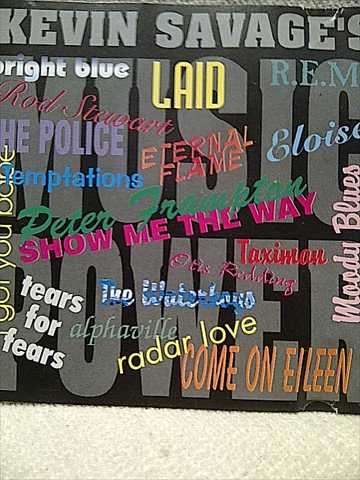 KEVIN SAVAGE'S
bright blue
LAID
R.E.M
Rod Stewart
HE POLICE
ETERNAL
FLAME
Eloise
Temptations
Peter Frampton
SHOW ME THE WAY
got you babe
Moody Blues
Taximan
Otis Redding
tears
for
fears
The Waterboys
alphaville
radar love
COME ON EILEEN
MUSIC
POWER